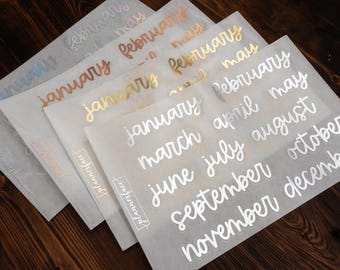 january february
may
january february
may
january february
may
january february
march april may
june july august
september october
november december